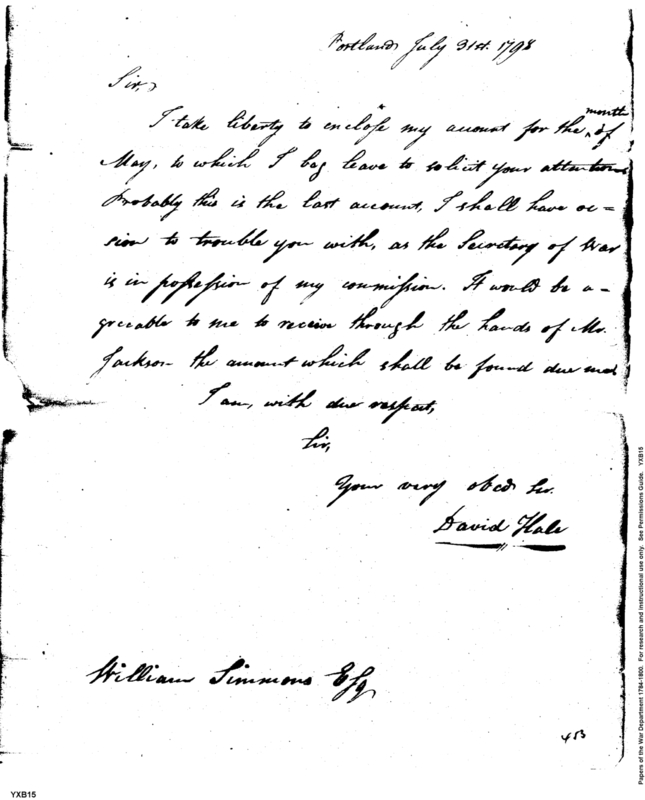 Portland July 31st. 1798
Sir,
I take liberty to inclose my account for the month of
May, to which I beg leave to solicit your attention
Probably this is the last account, I shall have oc=
sion to trouble you with, as the Secretary of War
is in possession of my commission. It would be a=
greeable to me to receive through the hands of Mr.
Jackson the amount which shall be found due me.
I am, with due respect,
Sir,
Your very obed. Ser.
David Hale
William Simmons Esq
453
YXB15
Papers of the War Department 1784-1800. For research and instructional use only. See Permissions Guide. YXB15